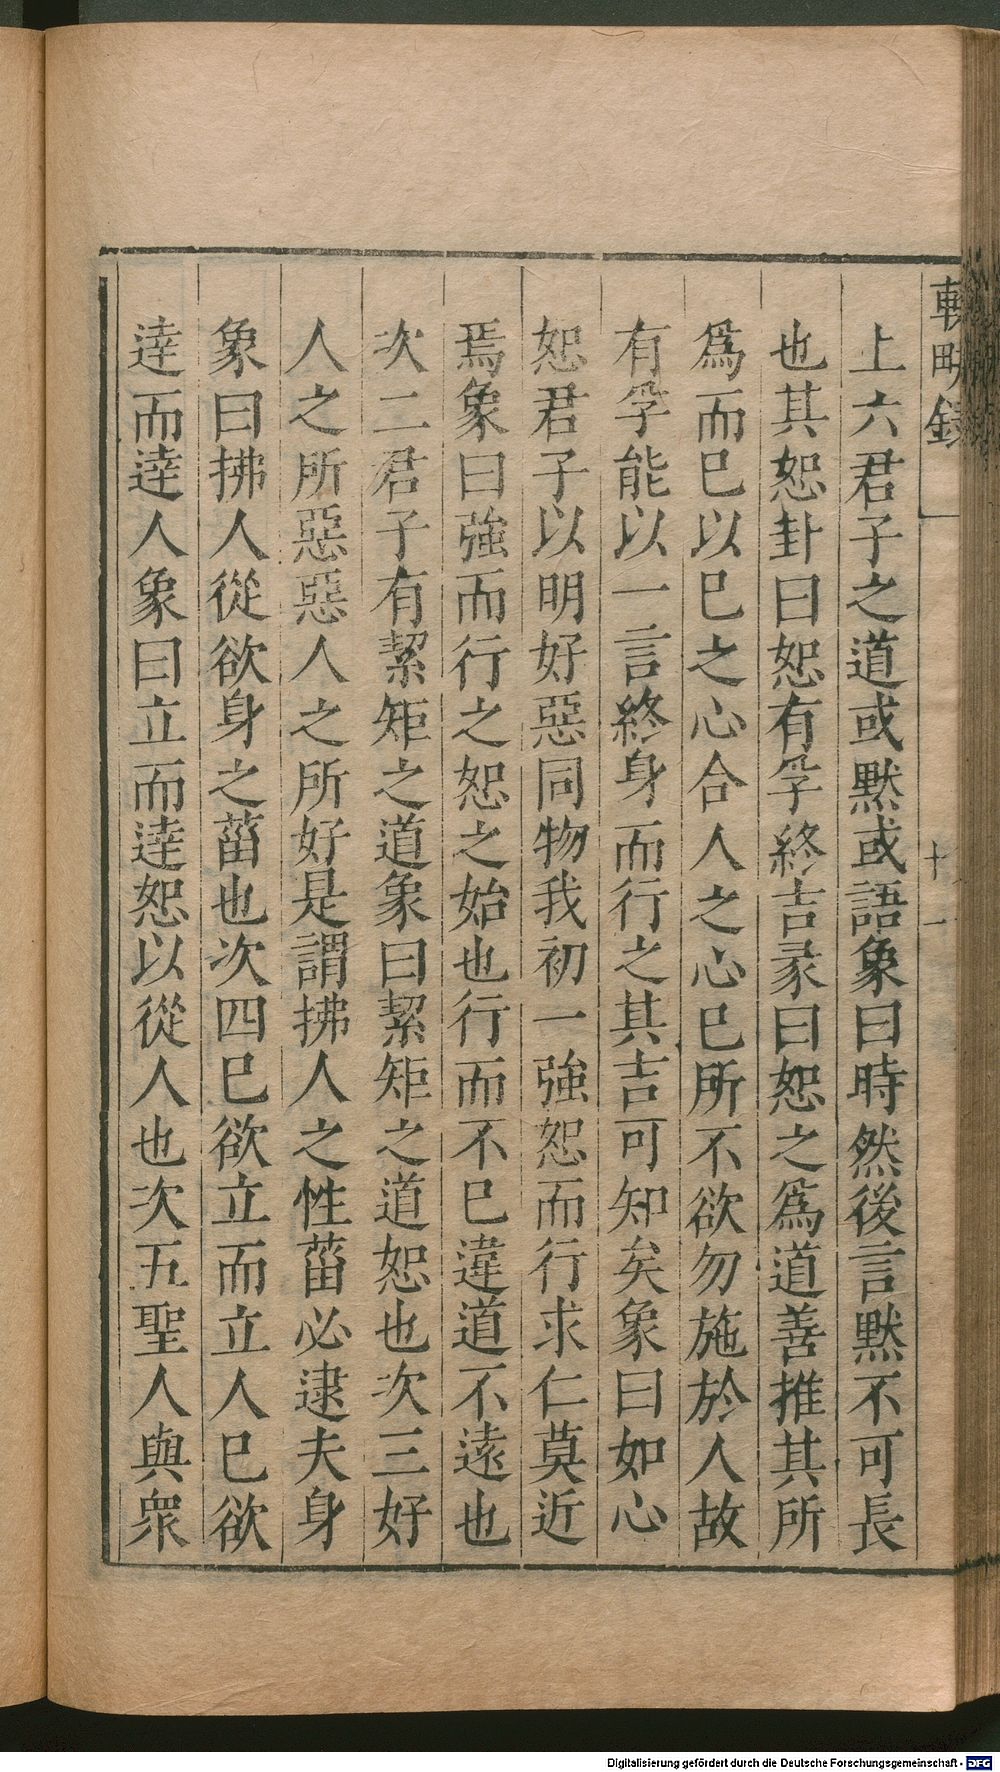 上六君子之道或黙或語象曰時然後言黙不可長
也其恕卦曰恕有孚終吉彖曰恕之爲道善推其所
爲而已以已之心合人之心已所不欲勿施於人故
有孚能以一言終身而行之其吉可知矣象曰如心
恕君子以明好惡同物我初一強恕而行求仁莫近
焉象曰強而行之恕之始也行而不已違道不遠也
次二君子有絜矩之道象曰絜矩之道恕也次三好
人之所惡惡人之所好是謂拂人之性菑必逮夫身
象曰拂人從欲身之菑也次四已欲立而立人已欲
逹而逹人象曰立而逹恕以從人也次五聖人與衆
十一
Digitalisierung gefördert durch die Deutsche Forschungsgemeinschaft - DFG